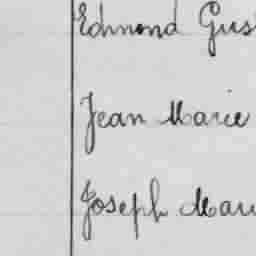 Edmond Gus
Jean Marie
Joseph Mari